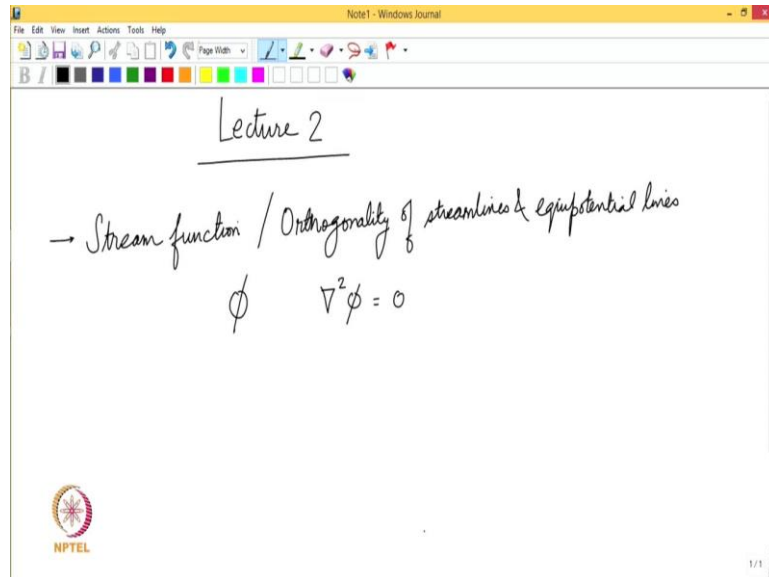 Note1 - Windows Journal
File Edit View Insert Actions Tools Help
Page Width
B I
Lecture 2
→ Stream function / Orthogonality of streamlines & equipotential lines
ϕ ∇²ϕ = 0
NPTEL
1/1